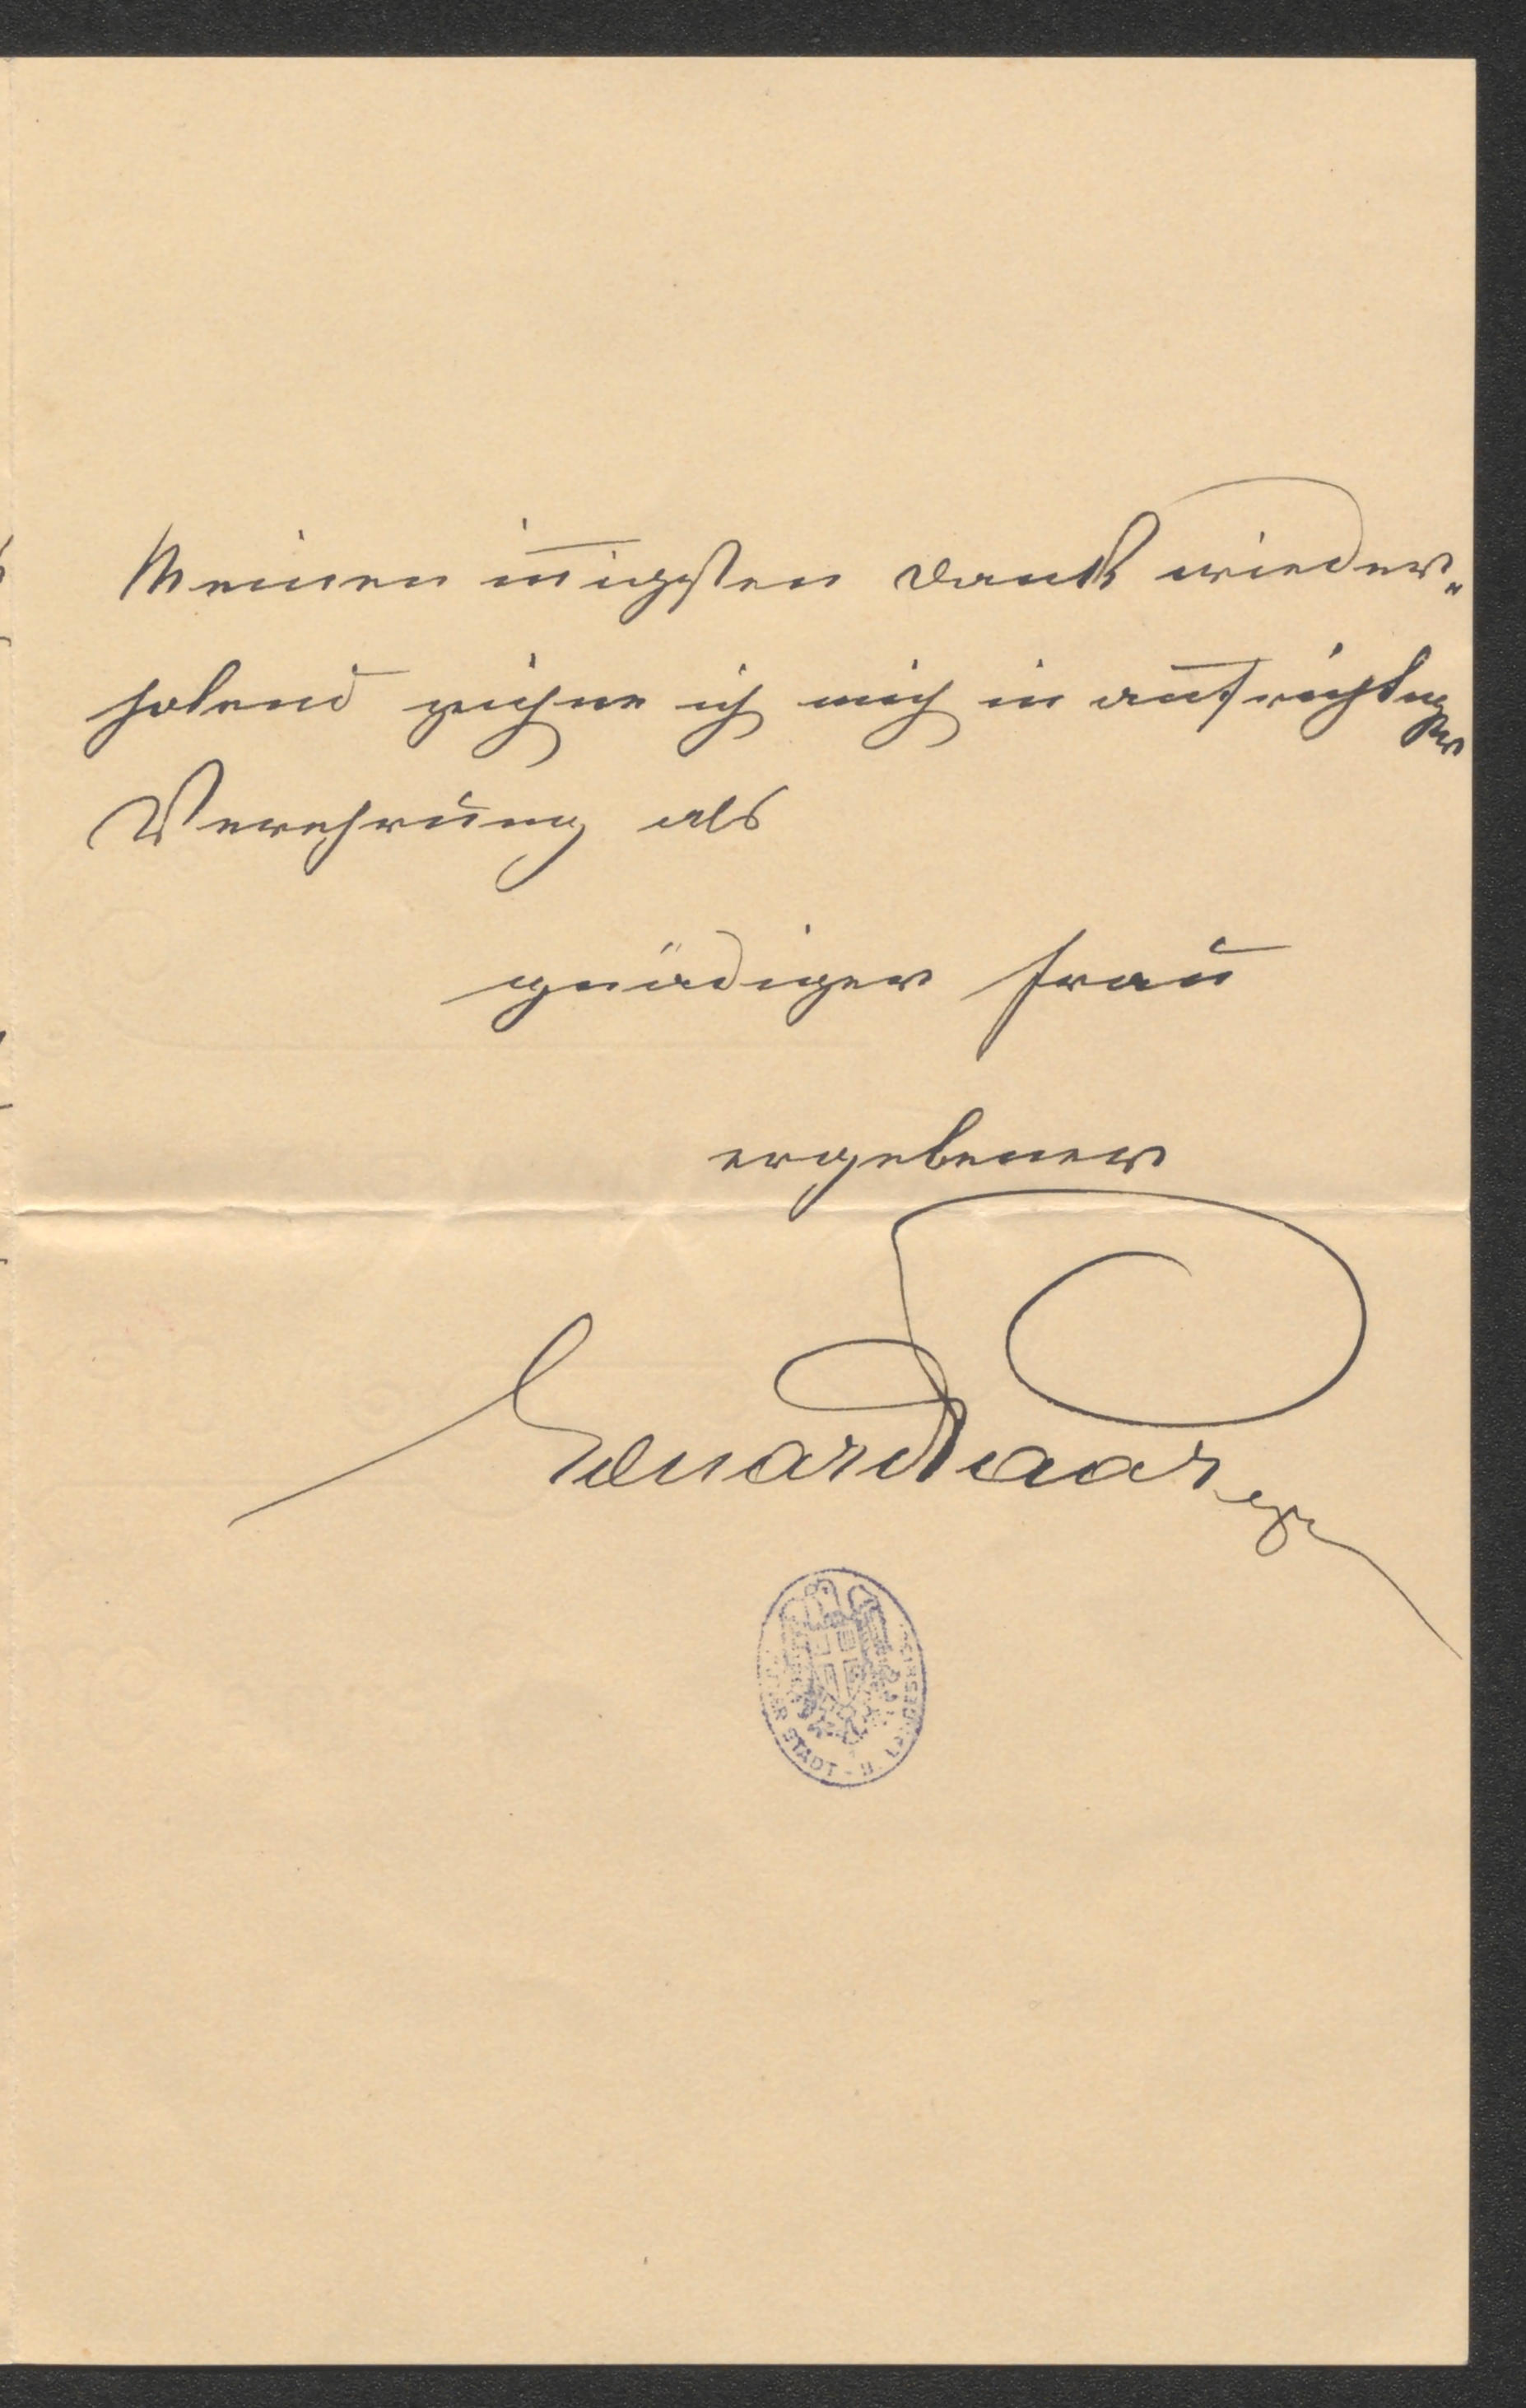 Meinen iñigsten Dank wieder-
holend zeichne ich mich in aufrichtigster
Verehrung als
gnädiger Frau
ergebener
Eduard Paar
STADT - U. LANDES